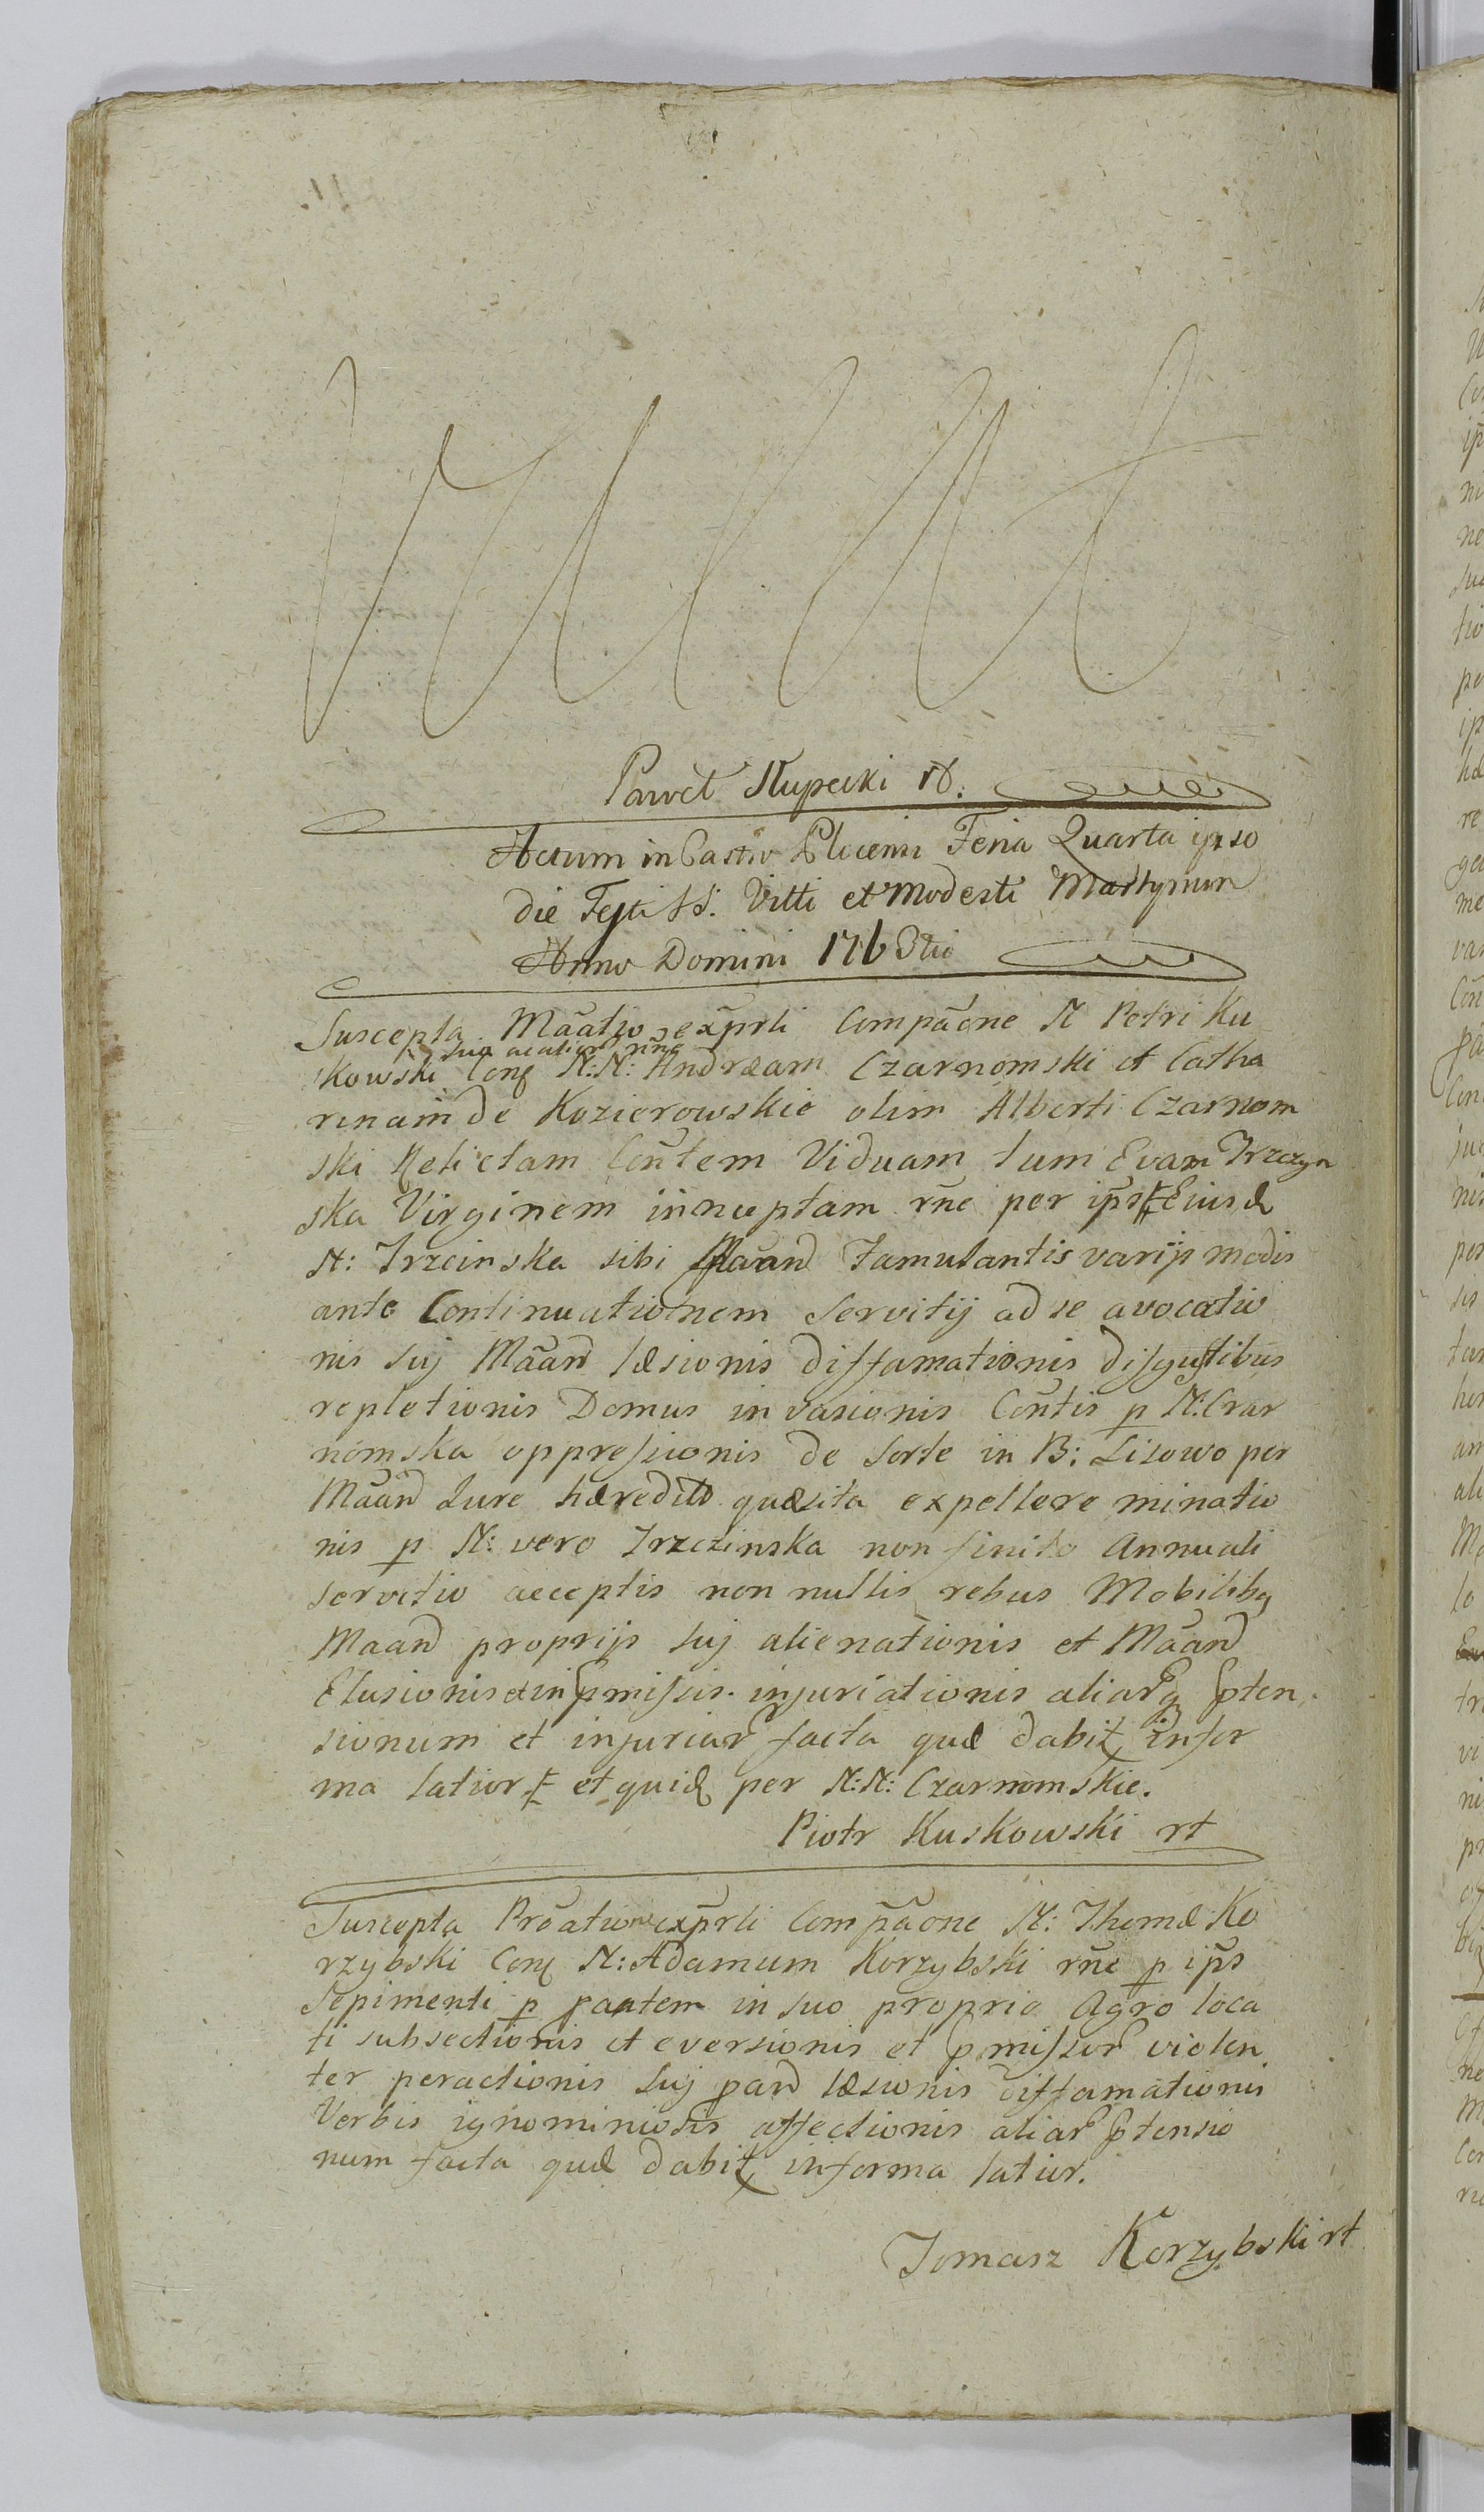 Paweł Słupecki rt.
Actum in Castro Plocensi Feria Quarta ipso
die Festi SS. Vitti et Modesti Martyrum
Anno Domini 1763tio
Suscepta Mãatio exp̃rli Compãone N Petri Ku
skowski Conq N:N: Andræam Czarnomski et Catha
rinam de Kozierowskie olim Alberti Czarnom
ski Relictam Coñtem Viduam tum Evam Trzczyn
ska Virginem innuptam rñe per ip̃s Eiusd
N: Trzcinska sibi Maand Famulantis varijs modis
ante Continuationem Servitij ad se avocatio
nis Suj Mãand læsionis diffamationis disgustibus
repletionis Domus invasionis Coñtis p N: Czar
nomska oppressionis de Sorte in B: Lisowo per
Mãand Jure hæredito quæsita expellere minatio
nis p N: vero Trzczinska non finito Annuali
servitio acceptis non nullis rebus Mobilibq
Maand proprijs Suj alienationis et Mãand
Elusionis et in pmissis injuriationis aliarq pten
sionum et injuriar facta quæ dabit in for
ma latior et quid per N:N: Czarnomskie.
Piotr Kuskowski rt
Suscepta Prõatione exp̃rli Comp̃aone N: Thomæ Ko
rzybski Conq N: Adamum Korzybski rñe p ip̃s
Sepimenti p partem in suo proprio Agro loca
ti subsectionis et eversionis et pmissor violen
ter peractionis Suj pand læsionis diffamationis
Verbis ignominiosis affectionis aliar ptensio
num facta quæ dabit in forma latior.
Tomasz Korzybski rt